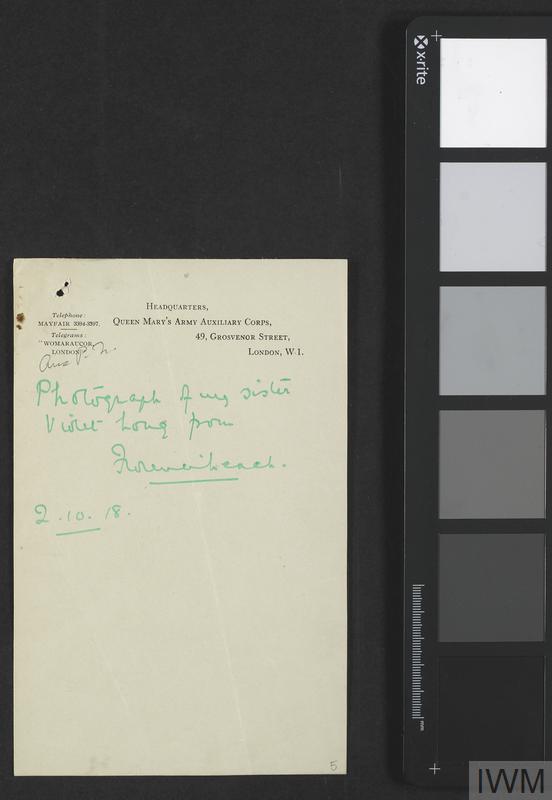 Headquarters,
Queen Mary's Army Auxiliary Corps,
49, Grosvenor Street,
London, W.1.
Telephone:
Mayfair 3394-3397.
Telegrams:
"Womaraucor,
London"
Photograph of my sister
Violet Long from
Florence Leach.
2.10.18.
5
x-rite
mm
IWM